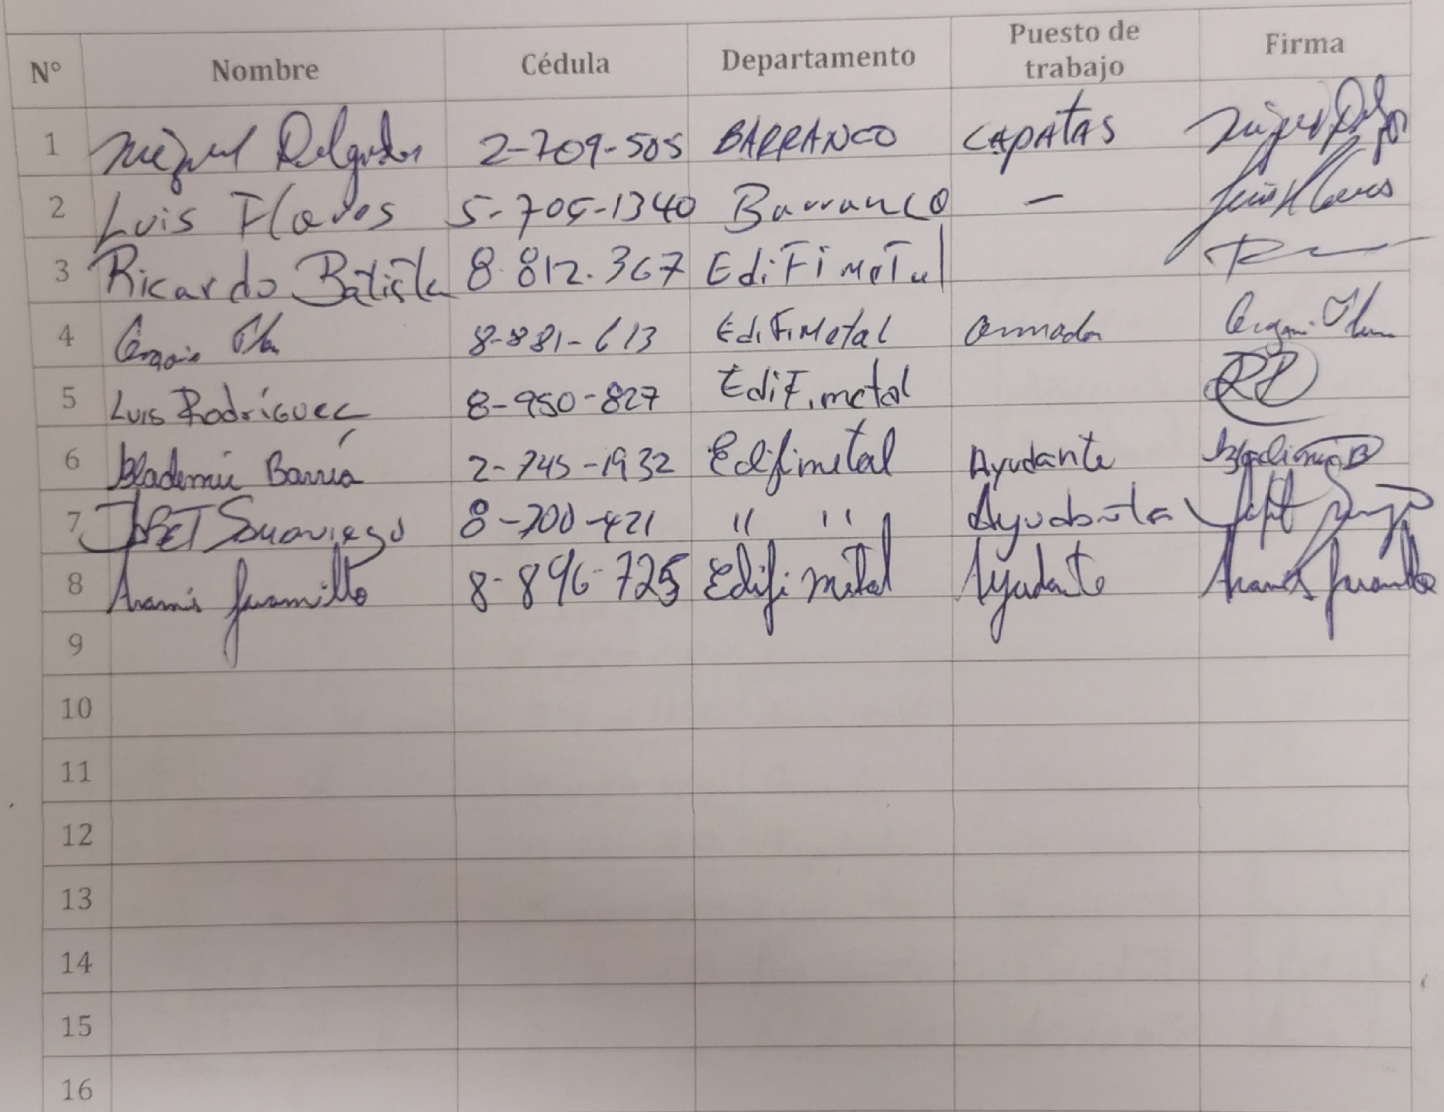 N° Nombre Cédula Departamento Puesto de trabajo Firma
1 Miguel Delgado 2-709-505 BARRANCO CAPATAS Miguel Delgado
2 Luis Flores 5-705-1340 Barranco — Luis Flores
3 Ricardo Batista 8 812.367 EdiFiMeTal
4 8-881-613 EdiFiMetal
5 Luis Rodríguez 8-950-827 EdiFimetal
6 Bladimir Barría 2-745-1932 Edifimetal Ayudante
7 8-700-421 " " Ayudante
8 Aramis Jaramillo 8-896-725 Edifimetal Ayudante Aramis Jaramillo
9
10
11
12
13
14
15
16